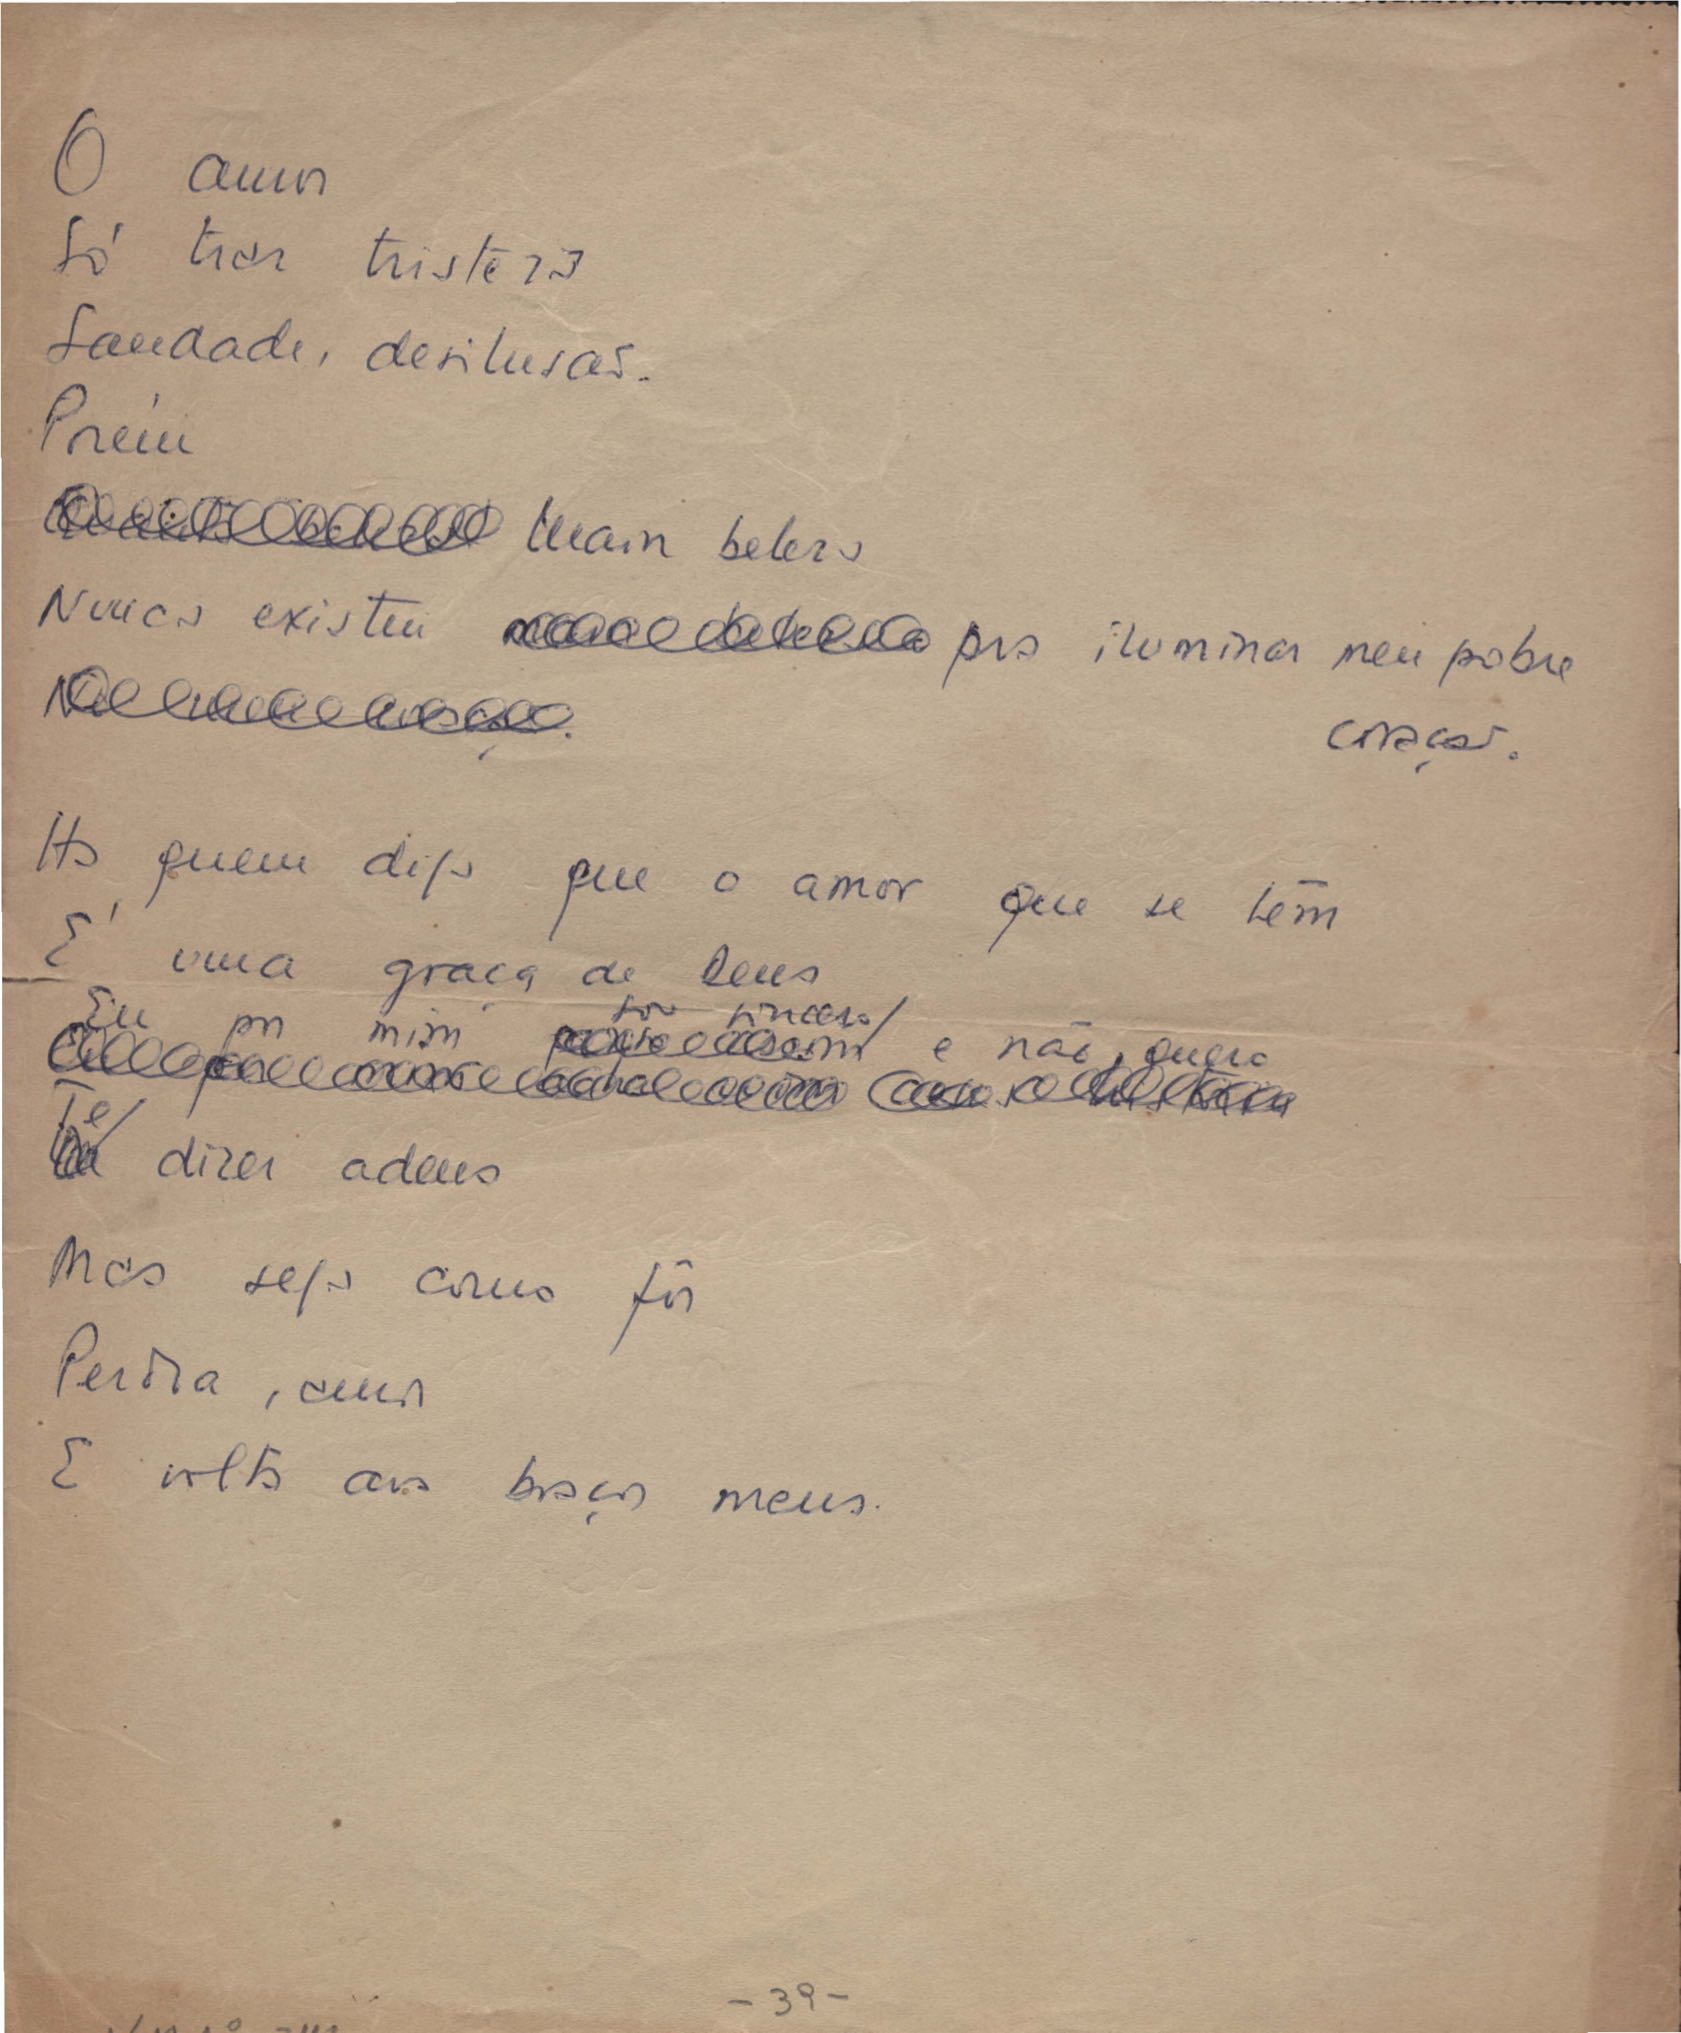 O amor
Só traz tristeza
Saudade, desilusão.
Porém
Maior beleza
Nunca existiu pra iluminar meu pobre
coração.
Há quem diga que o amor que se têm
É uma graça de Deus
sou sincero
Eu por mim e não quero
Te
dizer adeus
Mas seja como fôr
Perdôa, amor
E volta aos braços meus.
- 39 -